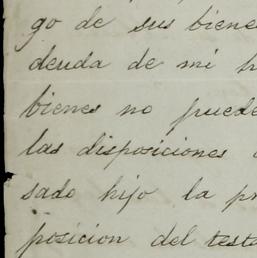 go de sus biene
deuda de mi h
bienes no puede
las disposiciones
sado hijo la pr
posicion del testa